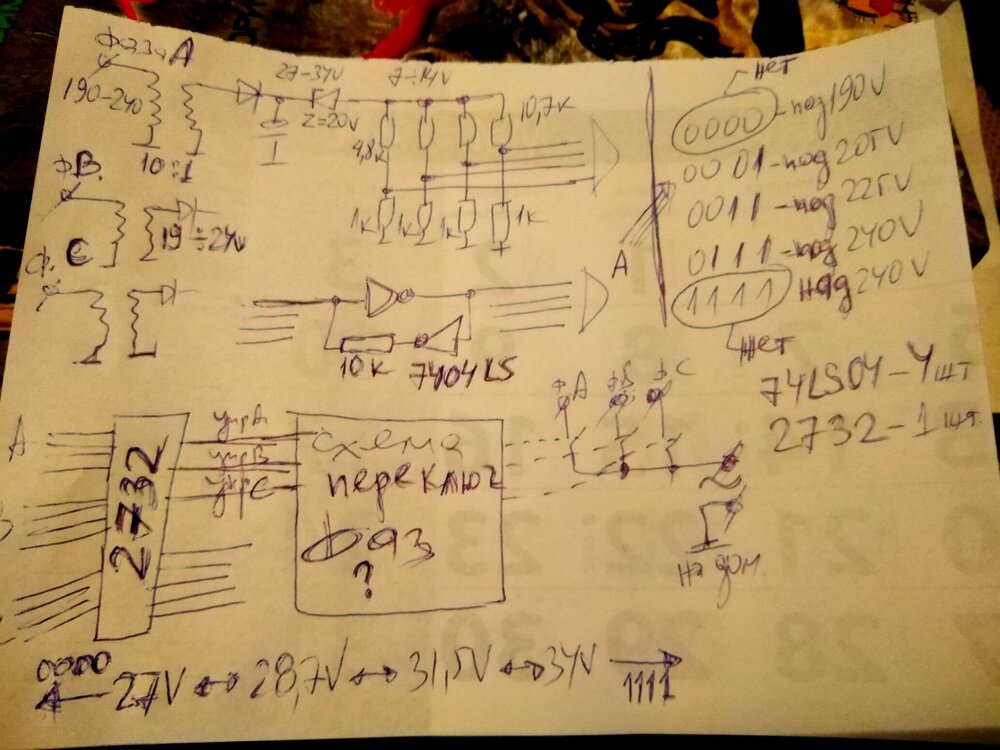 фаза A
190-240
10:1
27-34V
Z=20V
7÷14V
10,7к
4,8к
1к
1к
1к
1к
ф.B.
19÷24V
ф. C
A
нет
0000-под 190V
0001-под 205V
0011-под 225V
0111-под 240V
1111 над 240V
нет
10к
7404LS
74LS04-4шт
2732-1шт.
A
2732
упрA
упрB
упрC
схема
переключ
фаз
?
фA
фB
фC
на дом.
0000
27V ↔ 28,7V ↔ 31,5V ↔ 34V
1111